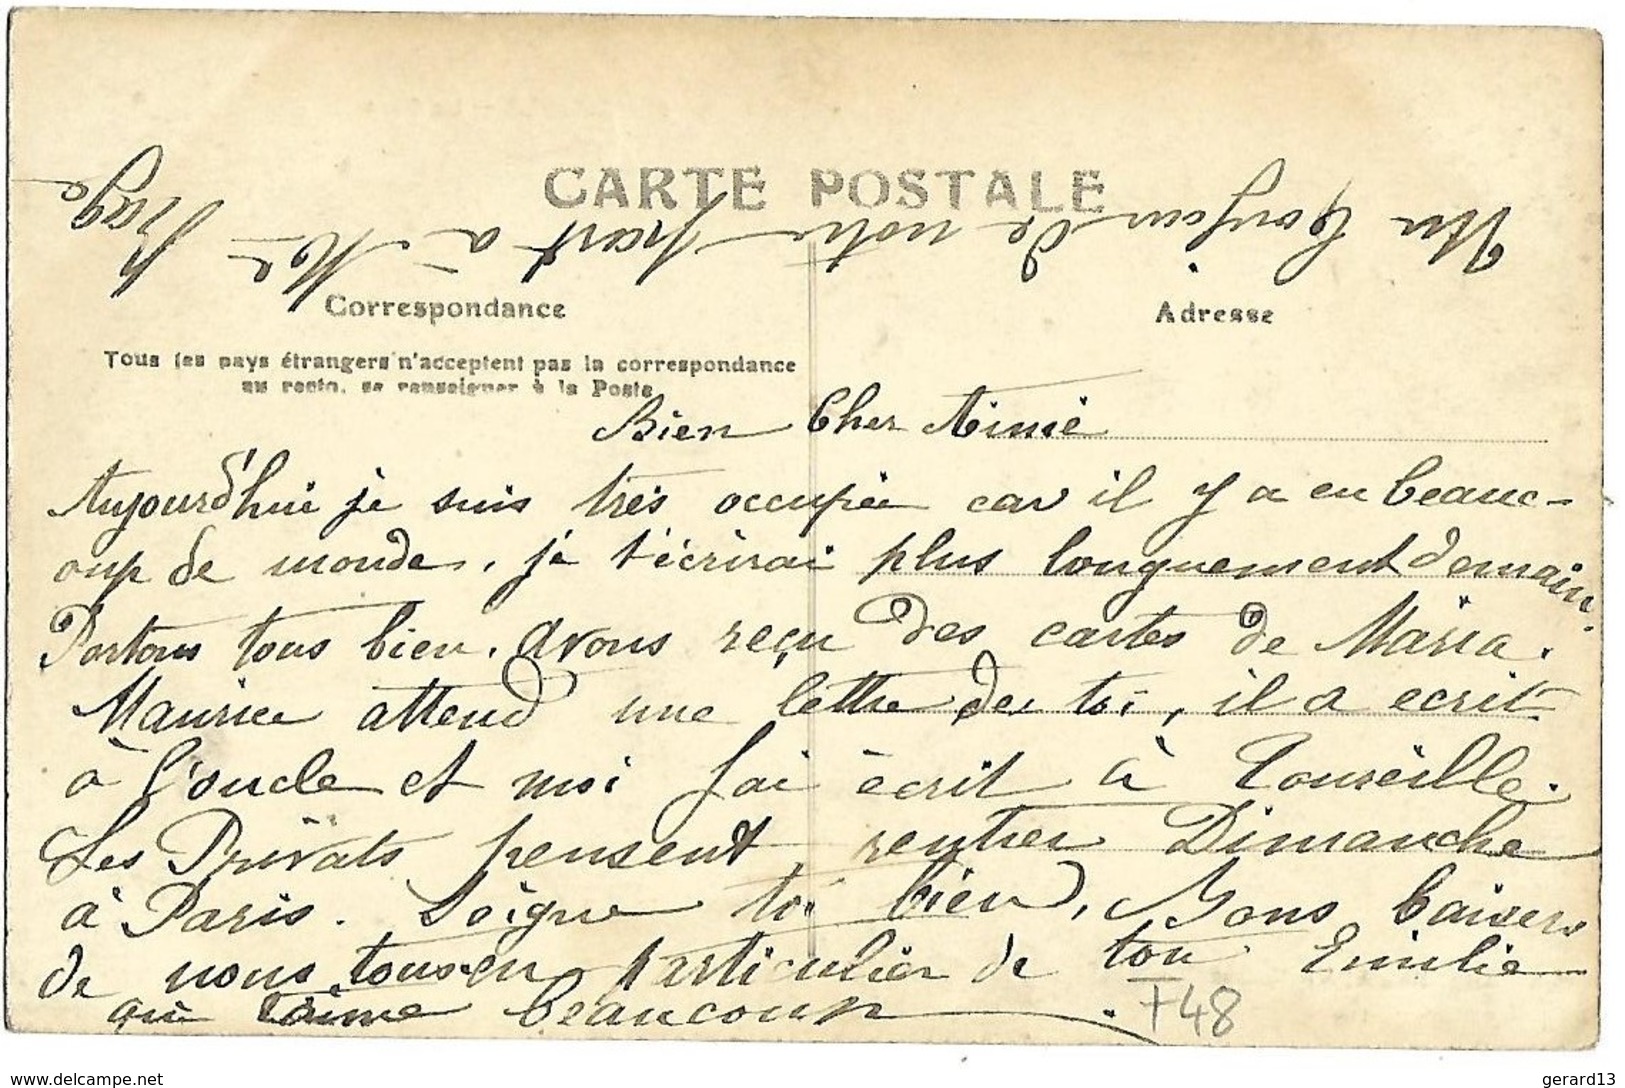 CARTE POSTALE
Un bonjour de notre part à Mme Rage
Correspondance
Adresse
Tous les pays étrangers n'acceptent pas la correspondance
au recto, se renseigner à la Poste
Bien Cher Aimé
Aujourd'hui je suis très occupée car il y a eu beauc-
oup de monde, je t'écrirai plus longuement demain.
Portons tous bien. Avons reçu des cartes de Maria.
Maurice attend une lettre de toi, il a ecrit
à l'oncle et moi j'ai écrit à Touseille.
Les Privats pensent rentrer Dimanche
à Paris. Soigne toi bien, Bons baisers
de nous tous en particulier de ton Emilie
qui t'aime beaucoup.
T48
www.delcampe.net
gerard13